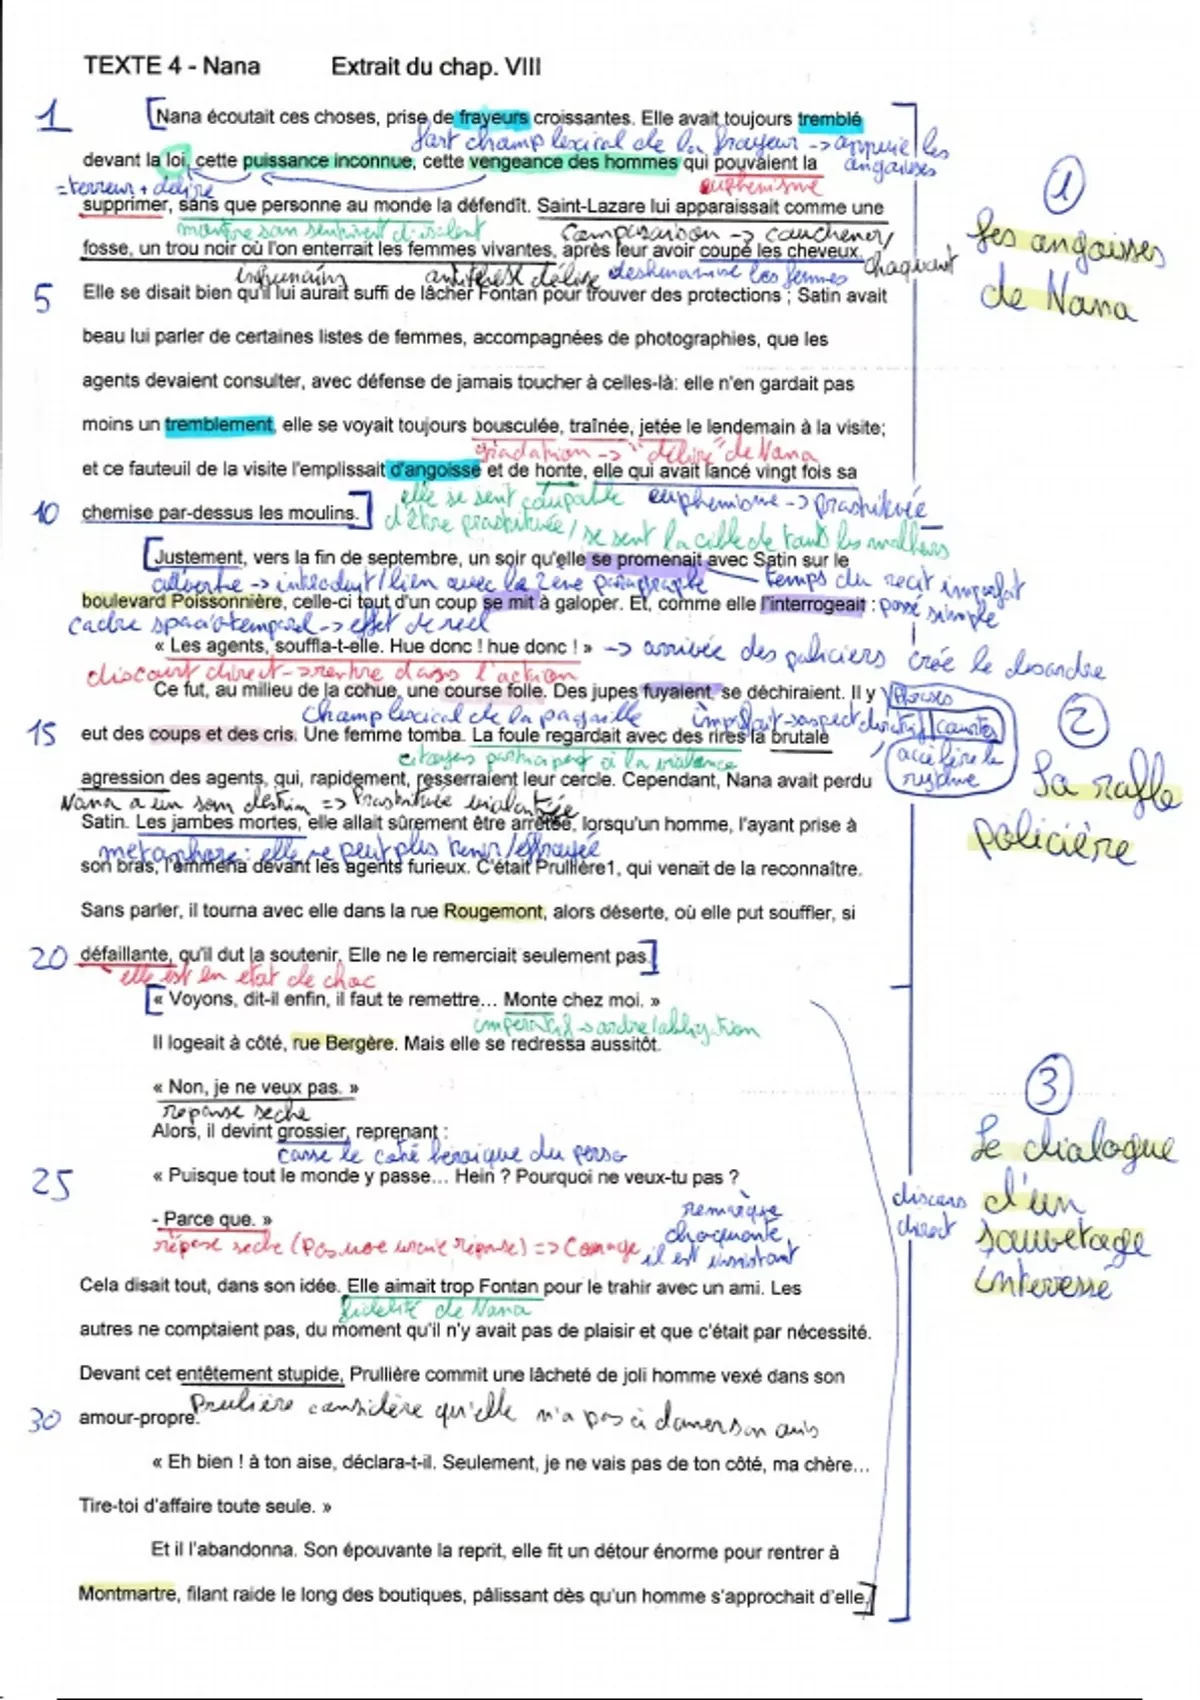 TEXTE 4 - Nana Extrait du chap. VIII
1 [Nana écoutait ces choses, prise de frayeurs croissantes. Elle avait toujours tremblé
fort champ lexical de la frayeur -> appuie les angoisses
devant la loi, cette puissance inconnue, cette vengeance des hommes qui pouvaient la
= terreur + délire
euphémisme
supprimer, sans que personne au monde la défendît. Saint-Lazare lui apparaissait comme une
montre son sentiment d'
comparaison -> cauchemar/
fosse, un trou noir où l'on enterrait les femmes vivantes, après leur avoir coupé les cheveux.
choquant
inhumain antithèse délire déshumanise les femmes
5 Elle se disait bien qu'il lui aurait suffi de lâcher Fontan pour trouver des protections ; Satin avait
beau lui parler de certaines listes de femmes, accompagnées de photographies, que les
agents devaient consulter, avec défense de jamais toucher à celles-là: elle n'en gardait pas
moins un tremblement, elle se voyait toujours bousculée, traînée, jetée le lendemain à la visite;
gradation -> "délire" de Nana
et ce fauteuil de la visite l'emplissait d'angoisse et de honte, elle qui avait lancé vingt fois sa
elle se sent coupable euphemisme -> prostituée
10 chemise par-dessus les moulins.]
d'être prostituée / se sent la cible de tout les malheurs
① Les angoisses de Nana
[Justement, vers la fin de septembre, un soir qu'elle se promenait avec Satin sur le
adverbe -> introduit/lien avec le 2ème paragraphe temps du recit imparfait
boulevard Poissonnière, celle-ci tout d'un coup se mit à galoper. Et, comme elle l'interrogeait :
passé simple
cadre spacio temporel -> effet de reel
« Les agents, souffla-t-elle. Hue donc ! hue donc ! » -> arrivée des policiers crée le désordre
discourt direct -> rentre dans l'action
Ce fut, au milieu de la cohue, une course folle. Des jupes fuyaient, se déchiraient. Il y
Phrases courtes / accélère le rythme
champ lexical de la pagaille imparfait ->
15 eut des coups et des cris. Une femme tomba. La foule regardait avec des rires la brutale
citoyens participent à la violence
agression des agents, qui, rapidement, resserraient leur cercle. Cependant, Nana avait perdu
Nana a un destin => Prostituée violentée
Satin. Les jambes mortes, elle allait sûrement être arrêtée, lorsqu'un homme, l'ayant prise à
metaphore : elle ne peut plus tenir /effrayée
son bras, l'emmena devant les agents furieux. C'était Prullière1, qui venait de la reconnaître.
Sans parler, il tourna avec elle dans la rue Rougemont, alors déserte, où elle put souffler, si
20 défaillante, qu'il dut la soutenir. Elle ne le remerciait seulement pas.]
elle est en etat de choc
② La rafle policière
[« Voyons, dit-il enfin, il faut te remettre... Monte chez moi. »
imperatif -> ordre/obligation
Il logeait à côté, rue Bergère. Mais elle se redressa aussitôt.
« Non, je ne veux pas. »
reponse seche
Alors, il devint grossier, reprenant :
casse le coté heroique du perso
25 « Puisque tout le monde y passe... Hein ? Pourquoi ne veux-tu pas ?
remarque choquante, il est insistant
- Parce que. »
répose seche (Pas une vraie réponse) => Courage
Cela disait tout, dans son idée. Elle aimait trop Fontan pour le trahir avec un ami. Les
fidelité de Nana
autres ne comptaient pas, du moment qu'il n'y avait pas de plaisir et que c'était par nécessité.
Devant cet entêtement stupide, Prullière commit une lâcheté de joli homme vexé dans son
Prulière considère qu'elle n'a pas à donner son avis
30 amour-propre.
« Eh bien ! à ton aise, déclara-t-il. Seulement, je ne vais pas de ton côté, ma chère...
Tire-toi d'affaire toute seule. »
Et il l'abandonna. Son épouvante la reprit, elle fit un détour énorme pour rentrer à
Montmartre, filant raide le long des boutiques, pâlissant dès qu'un homme s'approchait d'elle.]
discours direct
③ Le dialogue d'un sauvetage interessé